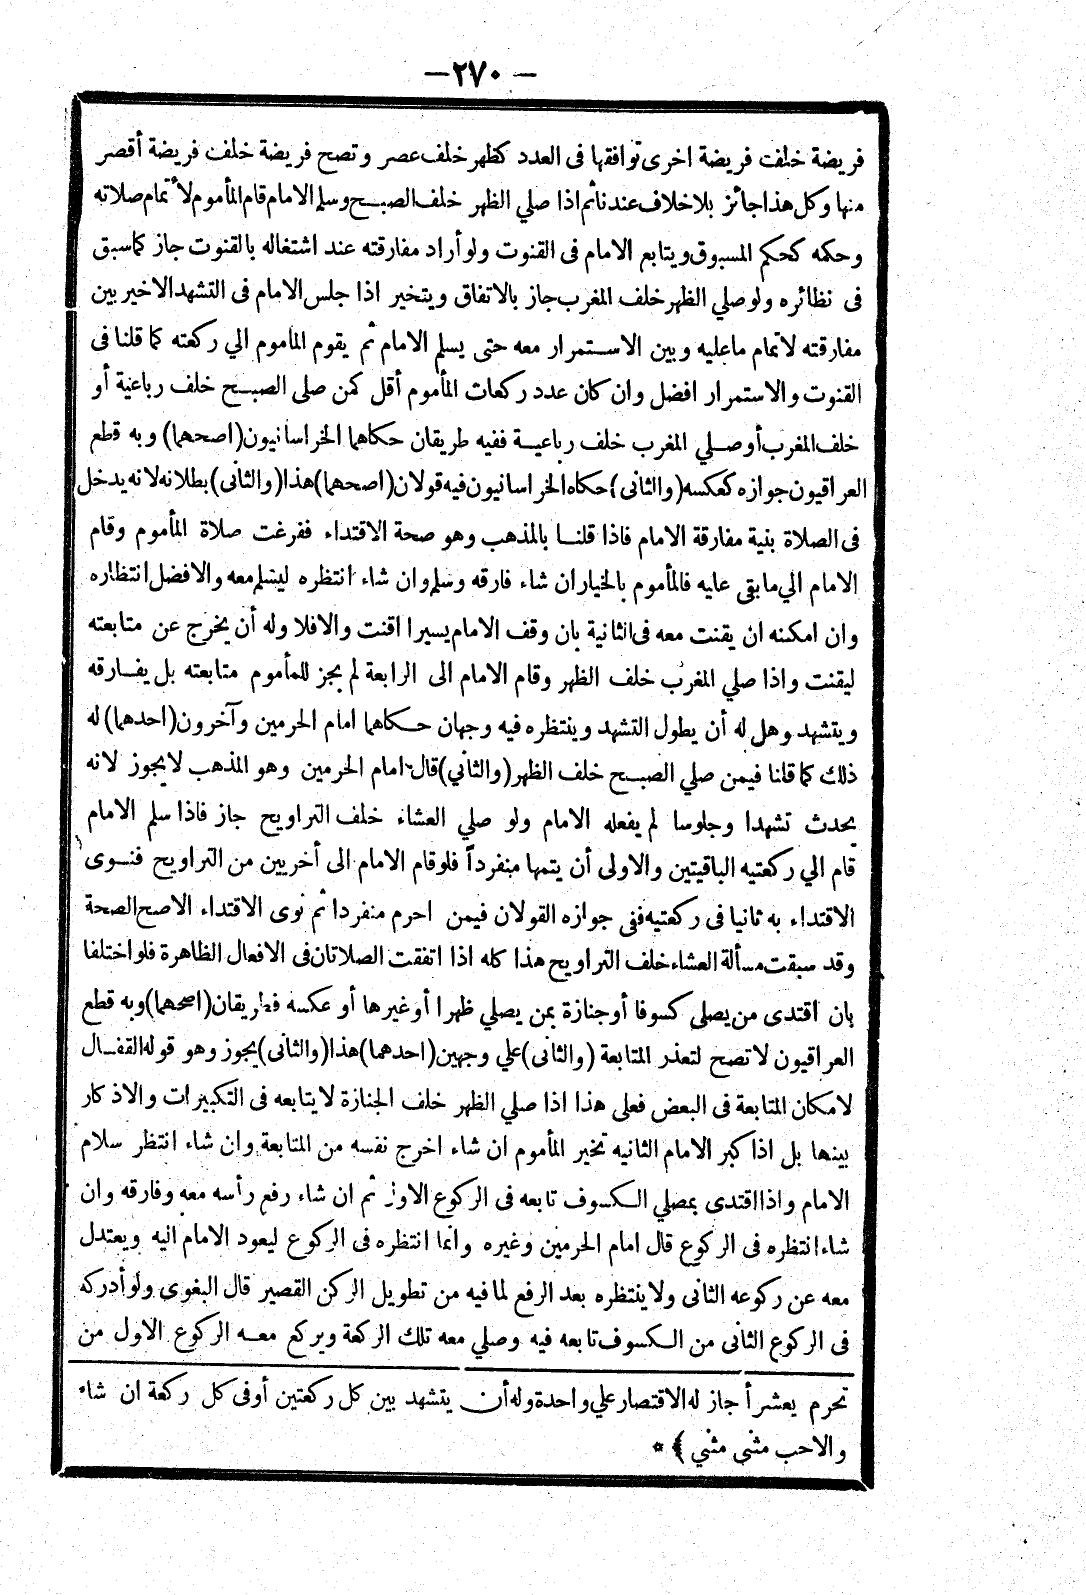 — ٢٧٠ —
فريضة خلف فريضة اخرى توافقها فى العدد كظهر خلف عصر وتصح فريضة خلف فريضة أقصر
منها وكل هذا جائز بلا خلاف عندنا ثم اذا صلي الظهر خلف الصبح وسلم الامام قام المأموم لاتمام صلاته
وحكمه كحكم المسبوق ويتابع الامام فى القنوت ولو أراد مفارقته عند اشتغاله بالقنوت جاز كما سبق
فى نظائره ولو صلي الظهر خلف المغرب جاز بالاتفاق ويتخير اذا جلس الامام فى التشهد الاخير بين
مفارقته لاتمام ما عليه وبين الاستمرار معه حتى يسلم الامام ثم يقوم المأموم الي ركعته كما قلنا فى
القنوت والاستمرار افضل وان كان عدد ركعات المأموم أقل كمن صلى الصبح خلف رباعية أو
خلف المغرب أو صلي المغرب خلف رباعية ففيه طريقان حكاهما الخراسانيون (اصحهما) وبه قطع
العراقيون جوازه كعكسه (والثانى) حكاه الخراسانيون فيه قولان (اصحهما) هذا (والثانى) بطلانه لانه يدخل
فى الصلاة بنية مفارقة الامام فاذا قلنا بالمذهب وهو صحة الاقتداء ففرغت صلاة المأموم وقام
الامام الي ما بقى عليه فالمأموم بالخيار ان شاء فارقه وسلم وان شاء انتظره ليسلم معه والافضل انتظاره
وان امكنه ان يقنت معه فى الثانية بان وقف الامام يسيرا اقنت والا فلا وله أن يخرج عن متابعته
ليقنت واذا صلي المغرب خلف الظهر وقام الامام الى الرابعة لم يجز للمأموم متابعته بل يفارقه
ويتشهد وهل له أن يطول التشهد وينتظره فيه وجهان حكاهما امام الحرمين وآخرون (احدهما) له
ذلك كما قلنا فيمن صلي الصبح خلف الظهر (والثاني) قال امام الحرمين وهو المذهب لا يجوز لانه
يحدث تشهدا وجلوسا لم يفعله الامام ولو صلي العشاء خلف التراويح جاز فاذا سلم الامام
قام الي ركعتيه الباقيتين والاولى أن يتمها منفرداً فلو قام الامام الى أخريين من التراويح فنوى
الاقتداء به ثانيا فى ركعتيه ففى جوازه القولان فيمن احرم منفردا ثم نوى الاقتداء الاصح الصحة
وقد سبقت مسألة العشاء خلف التراويح هذا كله اذا اتفقت الصلاتان فى الافعال الظاهرة فلو اختلفا
بان اقتدى من يصلى كسوفا أو جنازة بمن يصلي ظهرا أو غيرها أو عكسه فطريقان (اصحهما) وبه قطع
العراقيون لا تصح لتعذر المتابعة (والثانى) علي وجهين (احدهما) هذا (والثانى) يجوز وهو قوله القفال
لامكان المتابعة فى البعض فعلى هذا اذا صلي الظهر خلف الجنازة لا يتابعه فى التكبيرات والاذكار
بينها بل اذا كبر الامام الثانيه تخير المأموم ان شاء اخرج نفسه من المتابعة وان شاء انتظر سلام
الامام واذا اقتدى بمصلي الكسوف تابعه فى الركوع الاول ثم ان شاء رفع رأسه معه وفارقه وان
شاء انتظره فى الركوع قال امام الحرمين وغيره وانما انتظره فى الركوع ليعود الامام اليه ويعتدل
معه عن ركوعه الثانى ولا ينتظره بعد الرفع لما فيه من تطويل الركن القصير قال البغوى ولو أدركه
فى الركوع الثانى من الكسوف تابعه فيه وصلي معه تلك الركعة ويركع معه الركوع الاول من
تحرم بعشر أجاز له الاقتصار علي واحدة وله أن يتشهد بين كل ركعتين أو فى كل ركعة ان شاء
والاحب مثنى مثني ﴾ *